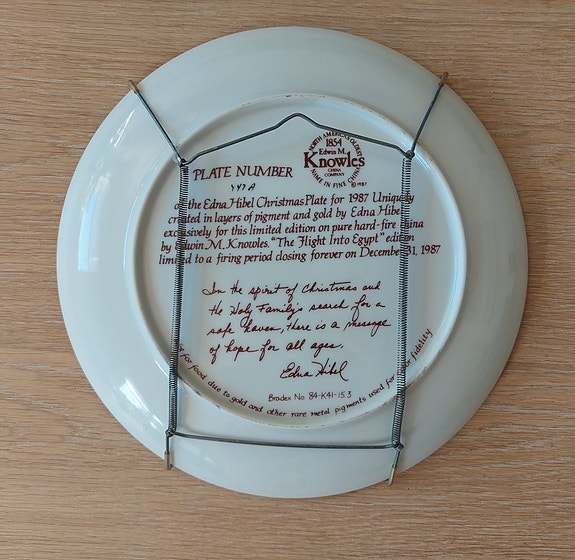 NORTH AMERICA'S OLDEST
1854
Edwin M.
Knowles
CHINA
COMPANY
NAME IN FINE CHINA
© 1987
PLATE NUMBER
the Edna Hibel Christmas Plate for 1987 Uniquely
created in layers of pigment and gold by Edna Hibel
exclusively for this limited edition on pure hard-fire china
by Edwin M. Knowles. "The Flight Into Egypt" edition
limited to a firing period closing forever on December 31, 1987
In the spirit of Christmas and
the Holy Family's search for a
safe haven, there is a message
of hope for all ages.
Edna Hibel
Bradex No 84-K41-15.3
for food due to gold and other rare metal pigments used for color fidelity